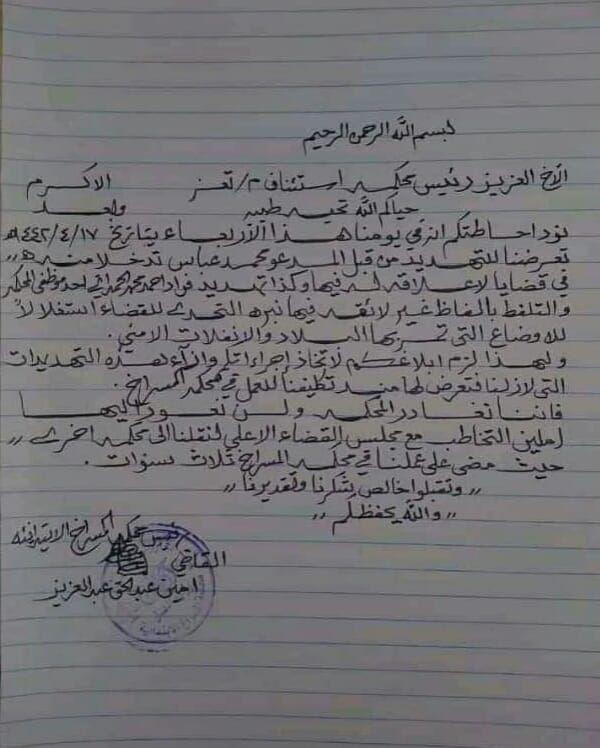 بسم الله الرحمن الرحيم
الأخ العزيز رئيس محكمة استئناف م/ تعز الاكرم
حياكم الله تحية طيبه وبعد
نود احاطتكم انه في يومنا هذا الأربعاء بتاريخ ١٤٤٢/٤/١٧هـ
تعرضنا للتهديد من قبل المدعو محمد عباس تدخلا منه
في قضايا لا علاقة له فيها وكذا تهديد فؤاد احمد محمد احد موظفي المحكمه
والتلفظ بالفاظ غير لائقه فيها نبرة التحدي للقضاء استغلالاً
للاوضاع التي تمر بها البلاد والانفلات الامني.
ولهذا لزم ابلاغكم لاتخاذ إجراءاتكم وإزاء هذه التهديدات
التي لازلنا نتعرض لها منذ تكليفنا للعمل في محكمة المسراخ.
فإننا نغادر المحكمه ولن نعود اليها
املين التخاطب مع مجلس القضاء الاعلى لنقلنا الى محكمة اخرى ,,
حيث مضى على عملنا في محكمة المسراخ ثلاث سنوات.
,, وتقبلوا خالص شكرنا وتقديرنا ,,
,, والله يحفظكم ,,
رئيس محكمة المسراخ الابتدائيه
القاضي
امين عبدالحق عبدالعزيز